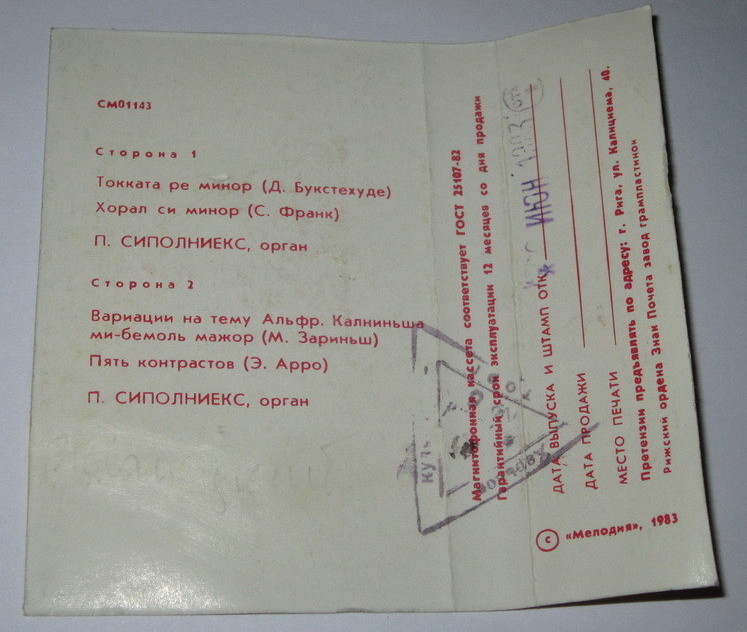 СМ01143
Сторона 1
Токката ре минор (Д. Букстехуде)
Хорал си минор (С. Франк)
П. СИПОЛНИЕКС, орган
Сторона 2
Вариации на тему Альфр. Калниньша
ми-бемоль мажор (М. Зариньш)
Пять контрастов (Э. Арро)
П. СИПОЛНИЕКС, орган
Магнитофонная кассета соответствует ГОСТ 25107-82
Гарантийный срок эксплуатации 12 месяцев со дня продажи
ДАТА ВЫПУСКА И ШТАМП ОТК ИЮН
ДАТА ПРОДАЖИ
МЕСТО ПЕЧАТИ
Претензии предъявлять по адресу: г. Рига, ул. Калнциема, 40.
Рижский ордена Знак Почета завод грампластинок
с «Мелодия», 1983